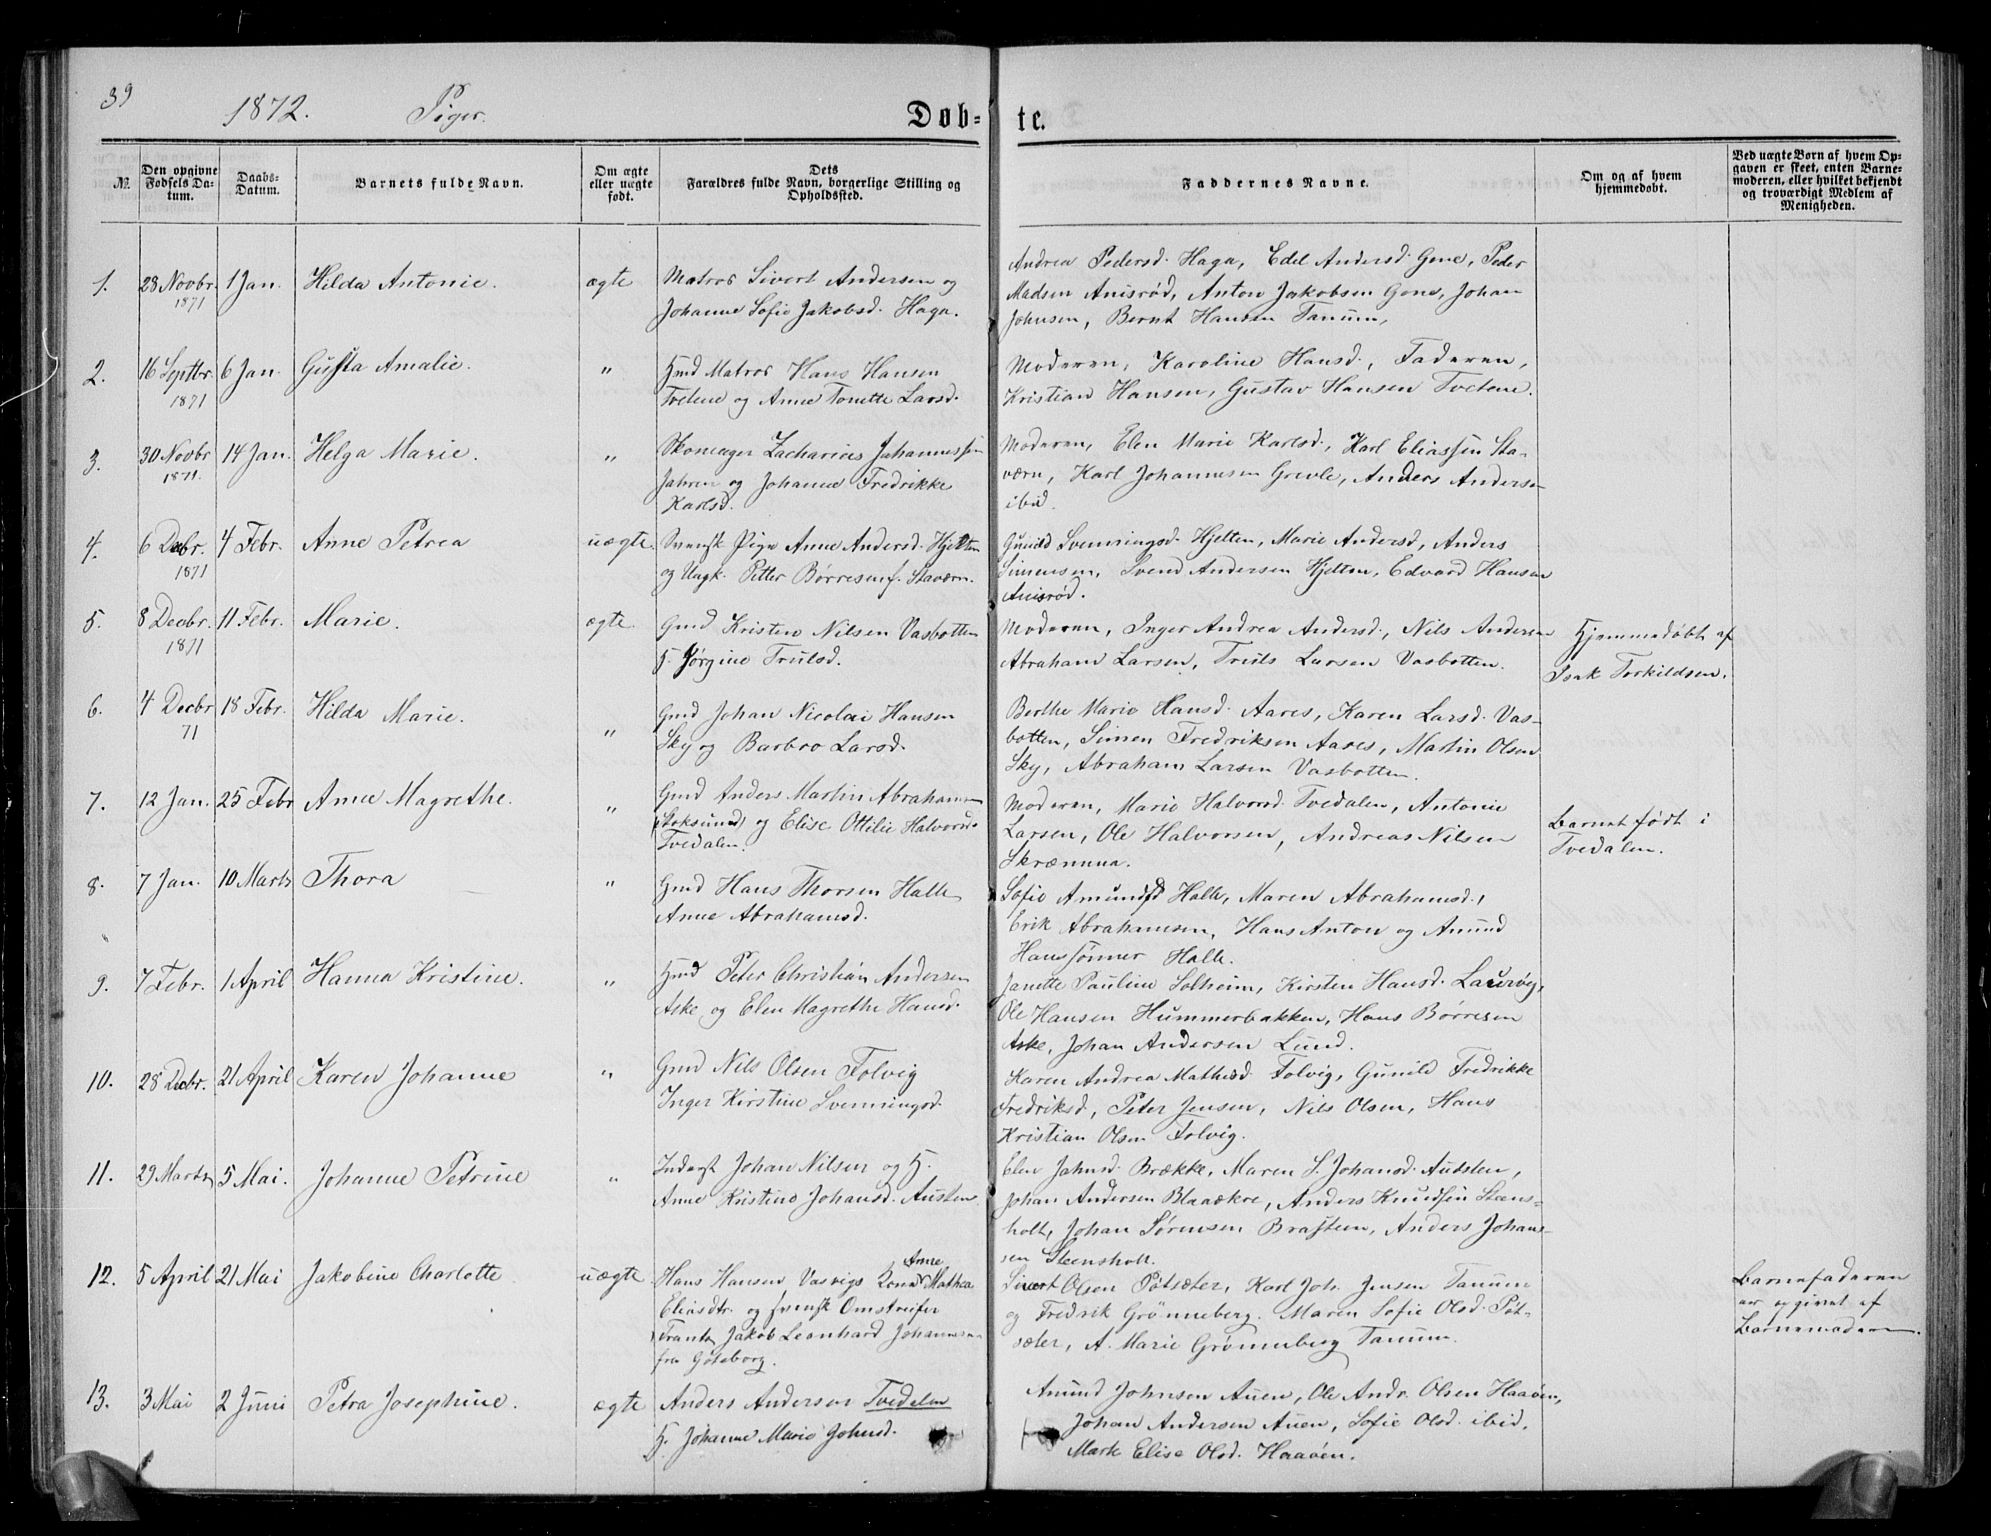 39
1872. Piger.
Døb-
te.
№.
Den opgivne Fødsels Datum.
Daabs-Datum.
Barnets fulde Navn.
Om ægte eller uægte født.
Dets Forældres fulde Navn, borgerlige Stilling og Opholdssted.
Faddernes Navne.
Om og af hvem hjemmedøbt.
Ved uægte Børn af hvem Opgaven er skeet, enten Barnemoderen, eller hvilket bekjendt og troværdigt Medlem af Menigheden.
1. 28 Novbr. 1871 1 Jan. Hilda Antonie. ægte
Matros Sivert Andersen og
Johanne Sofie Jakobsd. Haga.
Andrea Pedersd. Haga, Edel Andersd. Gone, Peder
Madsen Anisrød, Anton Jakobsen Gone, Johan
Johnsen, Bernt Hansen Tanum,
2. 16 Septbr. 1871 6 Jan. Gusta Amalie. "
Hmd Matros Hans Hansen
Tvetene og Anne Tonette Larsd.
Moderen, Karoline Hansd., Faderen,
Kristian Hansen, Gustav Hansen Tvetene.
3. 30 Novbr 1871. 14 Jan. Helga Marie. "
Skomager Zacharias Johannessen
Jahren og Johanne Fredrikke
Karlsd.
Moderen, Elen Marie Karlsd., Karl Eliassen Sta-
værn, Karl Johannesen Grevle, Anders Anderse
ibid.
4. 6 Decbr. 1871 4 Febr. Anne Petrea uægte.
Svensk Pige Anne Andersd. Hjelten
og Ungk. Petter Børresen f. Staværn.
Gunild Svenningsd. Hjelten, Marie Andersd, Anders
Simensen, Svend Andersen Hjelten, Edvard Hansen
Anisrød.
5. 8 Decbr. 1871 11 Febr. Marie. ægte
Gmd Kristen Nilsen Vasbotten
H. Jørgine Trulsd.
Moderen, Inger Andrea Andersd., Nils Andersen
Abraham Larsen, Truls Larsen Vasbotten.
Hjemmedøbt af
Isak Torkildsen.
6. 4 Decbr 71 18 Febr. Hilda Marie. "
Gmd Johan Nicolai Hansen
Sky og Barbro Larsd.
Berthe Marie Hansd. Aares, Karen Larsd. Vas-
botten, Simen Fredriksen Aares, Martin Olsen
Sky, Abraham Larsen Vasbotten.
7. 12 Jan. 25 Febr Anne Magrethe. "
Gmd Anders Martin Abrahamsen
(Stoksund) og Elise Ottilie Halvorsd.
Tvedalen.
Moderen, Marie Halvorsd. Tvedalen, Antonie
Larsen, Ole Halvorsen, Andreas Nilsen
Skræmma.
Barnet født i
Tvedalen.
8. 7 Jan. 10 Marts Thora "
Gmd Hans Thorsen Halle
Anne Abrahamsd.
Sofie Amundsd Halle, Maren Abrahamsd.,
Erik Abrahamsen, Hans Anton og Amund
Hanssønner Halle.
9. 7 Febr. 1 April Hanna Kristine. "
Hmd Peter Christian Andersen
Aske og Elen Magrethe Hansd.
Janette Pauline Solheim, Kirsten Hansd. Laurvig,
Ole Hansen Hummerbakken, Hans Børresen
Aske, Johan Andersen Lund.
10. 28 Decbr. 21 April Karen Johanne "
Gmd Nils Olsen Folvig
Inger Kirstine Svenningsd.
Karen Andrea Mathisd. Folvig, Gunild Fredrikke
Fredriksd, Peter Jensen, Nils Olsen, Hans
Kristian Olsen Folvig.
11. 29 Marts 5 Mai. Johanne Petrine "
Inderst Johan Nilsen og H.
Anne Kristine Johansd. Austen.
Elen Johnsd. Brække, Maren S. Johansd. Austen,
Johan Andersen Blaaækre, Anders Knudsen Steens-
holt, Johan Sørensen Brasteen, Anders Johan-
sen Steensholt.
12. 5 April 21 Mai Jakobine Charlotte uægte
Hans Hansen Vasvigs Kone Anne Mathea
Eliasdtr. og svensk Omstreifer
Frantz Jakob Leonhard Johannesen
fra Gøteborg.
Sivert Olsen Pøtsæter, Karl Joh. Jensen Tanum
og Fredrik Grønneberg. Maren Sofie Olsd. Pøt-
sæter, A. Marie Grønneberg Tanum.
Barnefaderen
er opgivet af
Barnemoderen.
13. 3 Mai 2 Juni Petra Josephine. ægte
Anders Andersen Tvedalen
H. Johanne Marie Johnsd.
Amund Johnsen Auen, Ole Andr. Olsen Haaøen,
Johan Andersen Auen, Sofie Olsd. ibid,
Mark Elise Olsd. Haaøen.